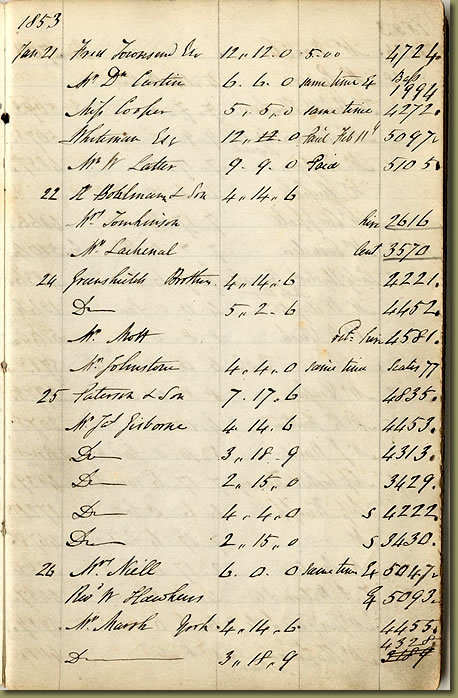 1853
Jan 21 Fred Townsend Esq 12,,12.0 5.00 4724.
Mr Dn Curtin 6.6.0 same time & Bass 1994
Miss Cooper 5,,5,,0 same time 4272.
Whiteman Esq 12,,12.0 Paid Feb 11 5097.
Mr W Later 9.9.0 Paid 5105
22 R Bohlmann & Son 4,,14,,6
Mrs Tomkinson hire 2616
Mr Lachenal lent 3570
24 Greenshields Brothers 4,,14,,6 4221.
Do 5,,2.6 4452.
Mr Mott hire 4581.
Mr Johnstone 4.4.0 same time 77
25 Paterson & Son 7.17,,6 4835.
Mr Jd Gisborne 4.14.6 4453.
Do 3,,18.9 4313.
Do 2,,15,,0 3429.
Do 4,,4.0 S 4222.
Do 2,,15.0 S 3430.
26 Mrs Niell 6.0.0 same time & 5047.
Revd W Hawkins & 5093.
Mr Marsh York. 4,,14,,6 4455.
Do 3,,18,,9 4328 3189